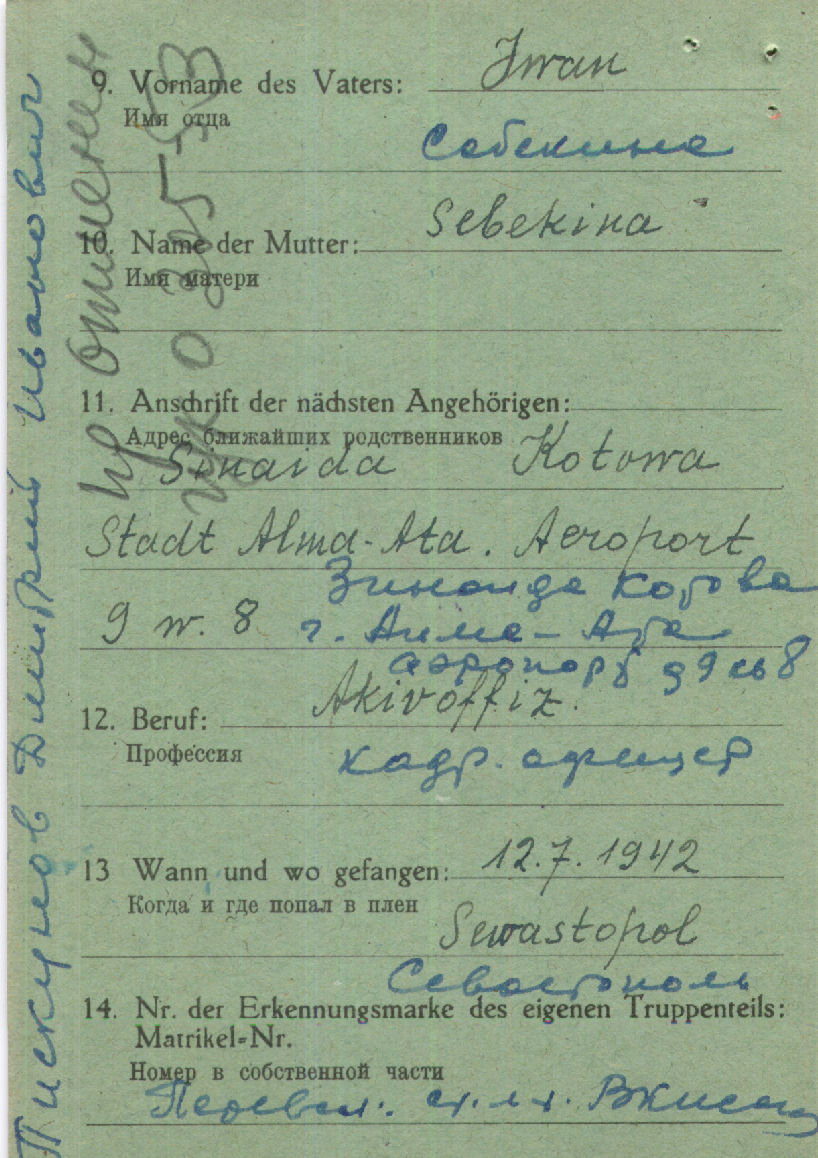 9. Vorname des Vaters: Iwan
Имя отца
Себекина
10. Name der Mutter: Sebekina
Имя матери
11. Anschrift der nächsten Angehörigen:
Адрес ближайших родственников
Sinaida Kotowa
Stadt Alma-Ata. Aeroport
9 w. 8
Зинаида Котова
г. Алма-Ата
аэропорт 8
12. Beruf: Aktivoffiz.
Профессия
кадр. офицер
13 Wann und wo gefangen: 12.7.1942
Когда и где попал в плен
Sewastopol
Севастополь
14. Nr. der Erkennungsmarke des eigenen Truppenteils:
Matrikel=Nr.
Номер в собственной части
Перевел:
Пискунов Дмитрий Иванович